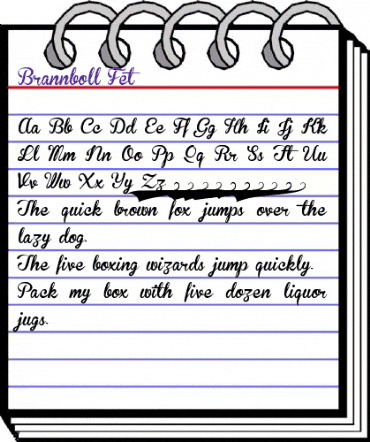 Brannboll Fet
Aa Bb Cc Dd Ee Ff Gg Hh Ii Jj Kk
Ll Mm Nn Oo Pp Qq Rr Ss Tt Uu
Vv Ww Xx Yy Zz
The quick brown fox jumps over the
lazy dog.
The five boxing wizards jump quickly.
Pack my box with five dozen liquor
jugs.